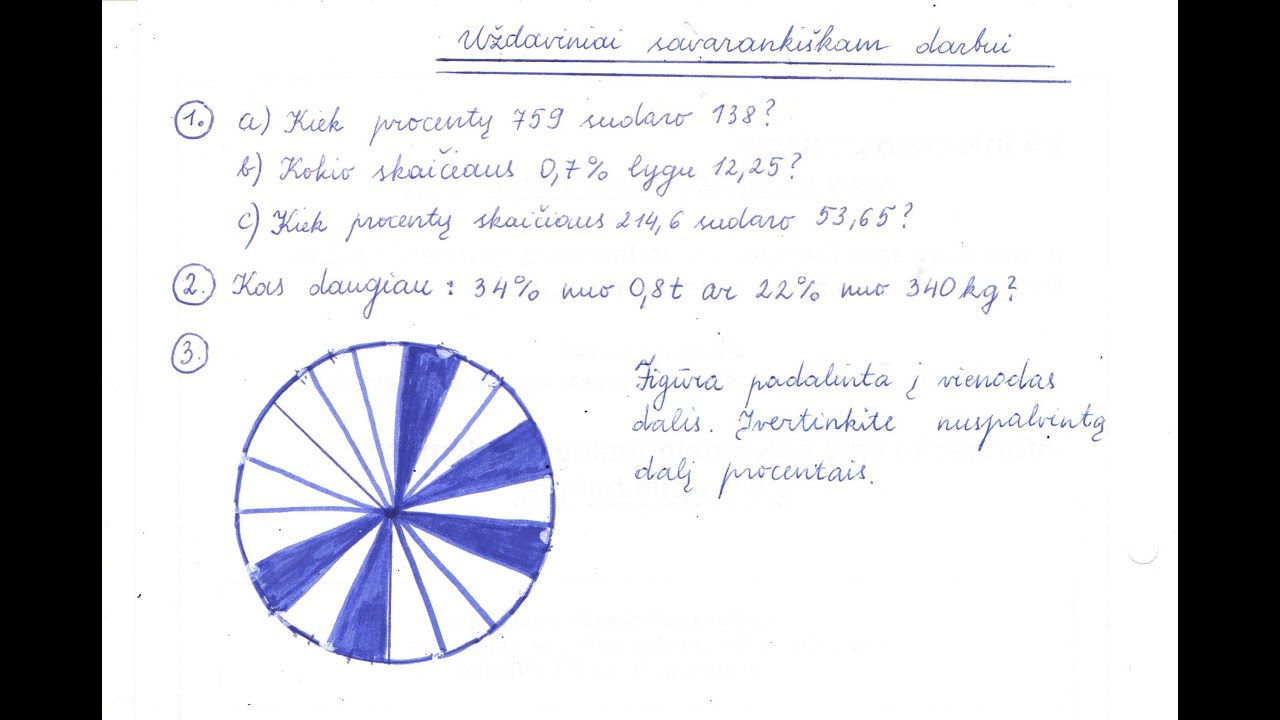 Uždaviniai savarankiškam darbui
1. a) Kiek procentų 759 sudaro 138?
b) Kokio skaičiaus 0,7% lygu 12,25?
c) Kiek procentų skaičiaus 214,6 sudaro 53,65?
2. Kas daugiau: 34% nuo 0,8t ar 22% nuo 340kg?
3.
Figūra padalintа į vienodas
dalis. Įvertinkite nuspalvintą
dalį procentais.